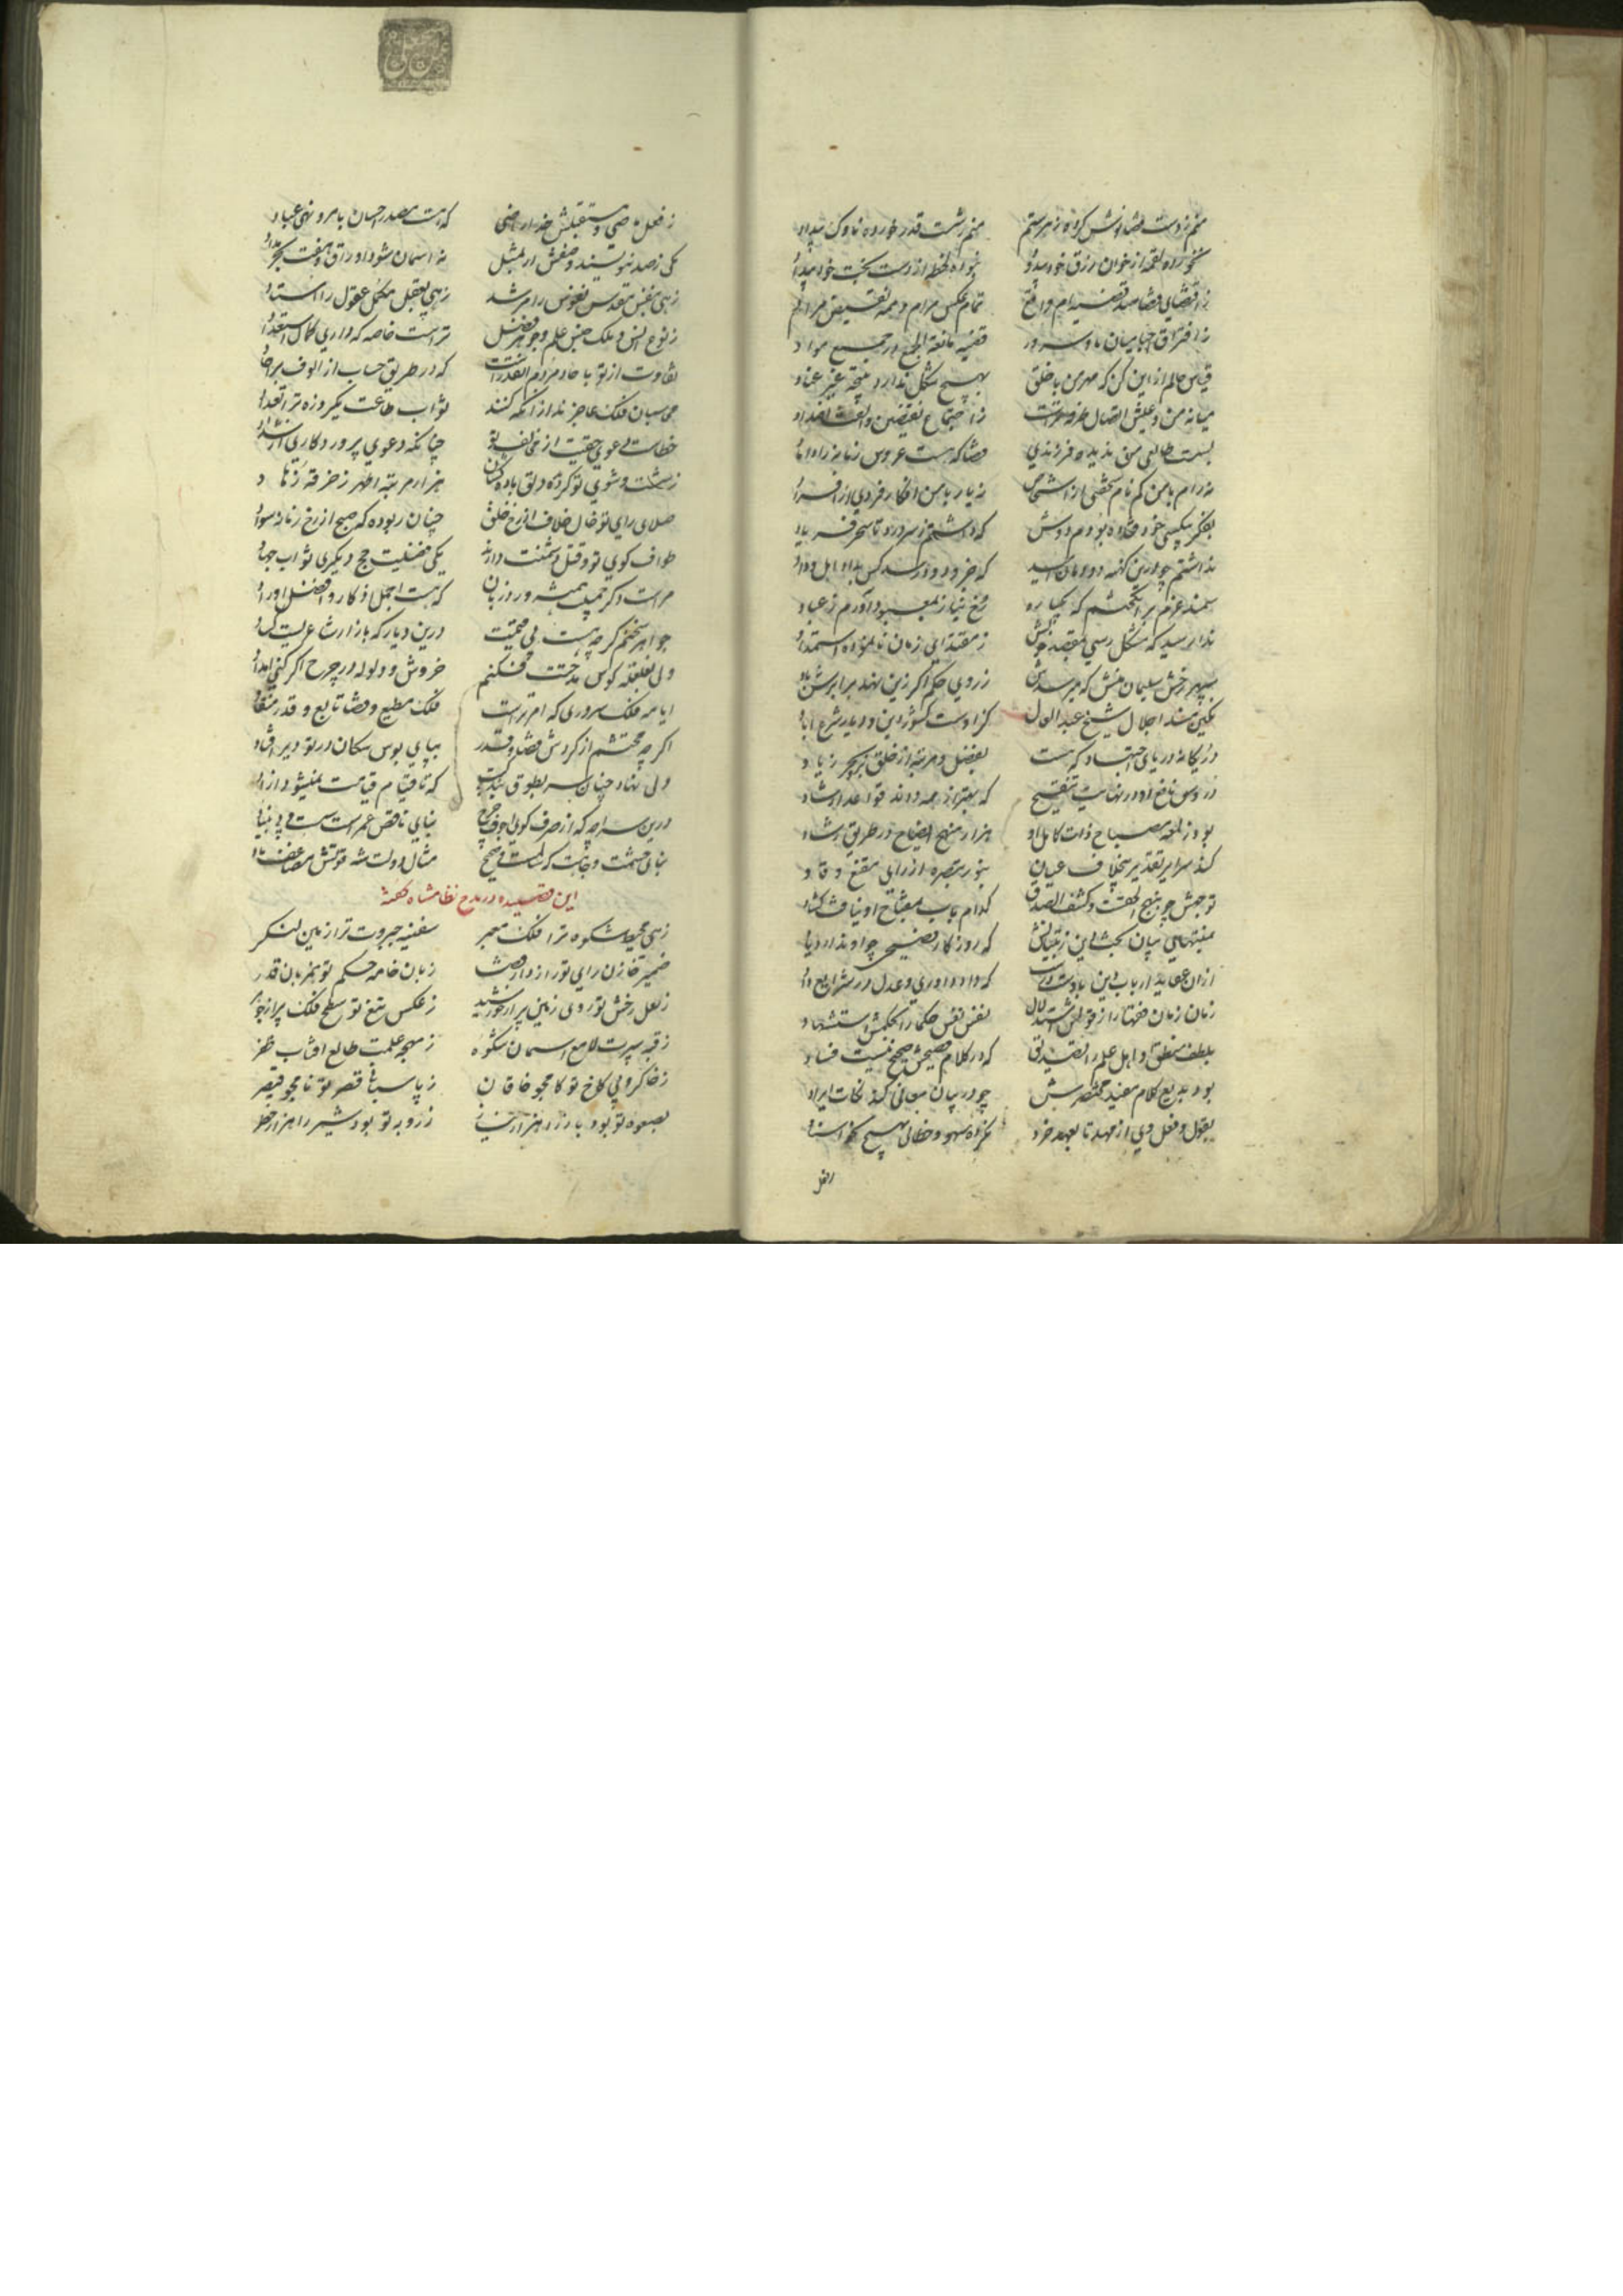 منم ز دست قضا نوش کرده زهر ستم منم ز شست قدر خورده ناوک بیداد
نخورده لقمه از خوان رزق خود میدؤ نبوده لحظه از دست بخت خود
ز اقتضای قضا صد قضیه ام واقع تمام عکس مرام و همه نقیض مراد
ز افتراق میان ما و سرور قضیه مانعة الجمع در جمیع مواد
قیاس حالم ازین کن که مهر من با خلق بهیچ شکل ندارد نتیجه غیر عناد
میانه من و عیش اتصال ز اجتماع نقیضین و الفت اضداد
قضا که هست عروس زمانه را داماد
نه رام با من کم نام شخصی از اشخاص نه یار با من افکار فردی از افراد
بفکر بیکسی خود فتاده بودم دوش که داشتم ز سر درد تا سحر فریاد
نداشتم چو درین کهنه امید که خرد و ورسد کس بداد اهل وداد
سمند عزم برانگیختم که یکباره رخ نیاز بمعبود آورم ز عباد
ندا رسید که مشکل رسی بمقصد خویش ز مقتدای زمان نانموده استمداد
سپهر رخش سلیمان منش که میرسدش ز روی حکم اگر زین نهد برابرش باد
نکین مسند اجلال شیخ عبدالعال کزاوست کشور دین و دیار شرع آباد
در یگانه دریای اجتهاد که هست بفضل و مرتبه از خلق بحر و بر زیاد
دروس نافع او در نهایت تنقیح که بهتر از همه داند قواعد ارشاد
بود ز لمعه مصباح ذات کامل او هزار منهج ایضاح در طریق رشاد
کند سرایر تقدیر بیخلاف عیان بنور تبصره از رای مقنع و قاد
توجهش چو بنهج الحق است و کشف الصدق کدام باب بمفتاح او نیافت کشاد
بمنتهای بیان که روزگار فصیحی چو او ندارد یاد
ازان عقاید ارباب دین باو شد راست که داد داوری و عدل در شرایع داد
زمان زمان فقها را ز قولش استدلال نفس نفس حکما را بحکمش استشهاد
بلطف منطق او اهل علم را تصدیق که در کلام فصیحش صحیح نیست فساد
بود بدیع کلام مفید مختصرش چو در بیان معانی کند نکات ایراد
بقول و فعل وی از مهد تا بعهد خرد نکرده سهو و خطائی بهیچ اسناد
ز فعل ماضی و مستقبلش خدا راضی که هست مصدر احسان بامر و نهی عباد
یکی ز صد ننویسند وصفش ار بمثل نه آسمان شود اوراق و هفت بحر مداد
زهی بنفس مقدس نفوس را مرشد زهی بعقل مکمل عقول را استاد
ز نوع انس و ملک جنس علم و جوهر فضل تراست خاصه که داری کمال استعداد
تفاوت از تو با حاد مردم آنقدرست که در طریق حساب از الوف بر احاد
محاسبان فلک عاجزند از آنکه کنند ثواب طاعت یکروزه ترا تعداد
خطاست دعوی حقیت از مخالف تو چنانکه دعوی پروردکاری از شداد
ز شست و شوی تو کردد دلق باده کشان هزار مرتبه اطهر ز خرقه زهاد
صلای رای تو خال خلاف از رخ خلق چنان ربوده که صبح از رخ زمانه سواد
طواف کوی تو و قتل دشمنت دارند یکی فضیلت حج و دیکری ثواب جهاد
مراست ذکر جمیلت همیشه ورد زبان که هست اجمل اذکار و افضل اوراد
جواهر سخنم کرچه هست بی قیمت درین دیار که بازار شاعریست کساد
ولی بغلغله کوس مدحتت فکنم خروش و ولوله در چرخ اگر کنی امداد
ایا مه فلک سروری که امر تراست فلک مطیع و قضا تابع و قدر منقاد
اکرچه محتشم از کردش قضا و قدر بپای بوس سکان در تو دیر افتاد
ولی نهاد چنان سر بطوق بندگیت که تا قیام قیامت نمیشود آزاد
درین سراچه که از صرف بنای ناقص عمر است سست و بی بنیاد
بنای حشمت و جاهت که سالم است و صحیح مثال دولت شه قوتش مضاعف باد
این قصیده در مدح نظامشاه کفته
زهی محیط شکوه ترا فلک معبر سفینه جبروت ترا زمین لنکر
ضمیر خازن رای تو رازدار قضا زبان خامه حکم تو ترجمان قدر
ز نعل رخش تو روی زمین پر از خورشید ز عکس تیغ تو سطح فلک پر از جوهر
ز قبه سپرت لامع آسمان شکوه ز مهچه علمت طالع آفتاب ظفر
ز خاکروبی کاخ تو کامجو خاقان ز پاسبانی قصر تو نامجو قیصر
بصعوه تو بود باز را هزار نیاز ز روبه تو بود شیر را هزار خطر